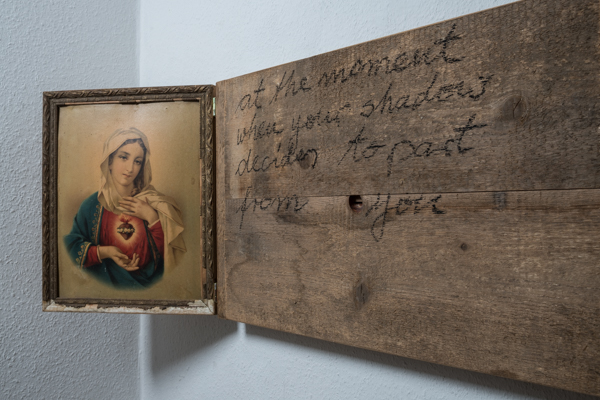 at the moment
when your shadow
decides to part
from you